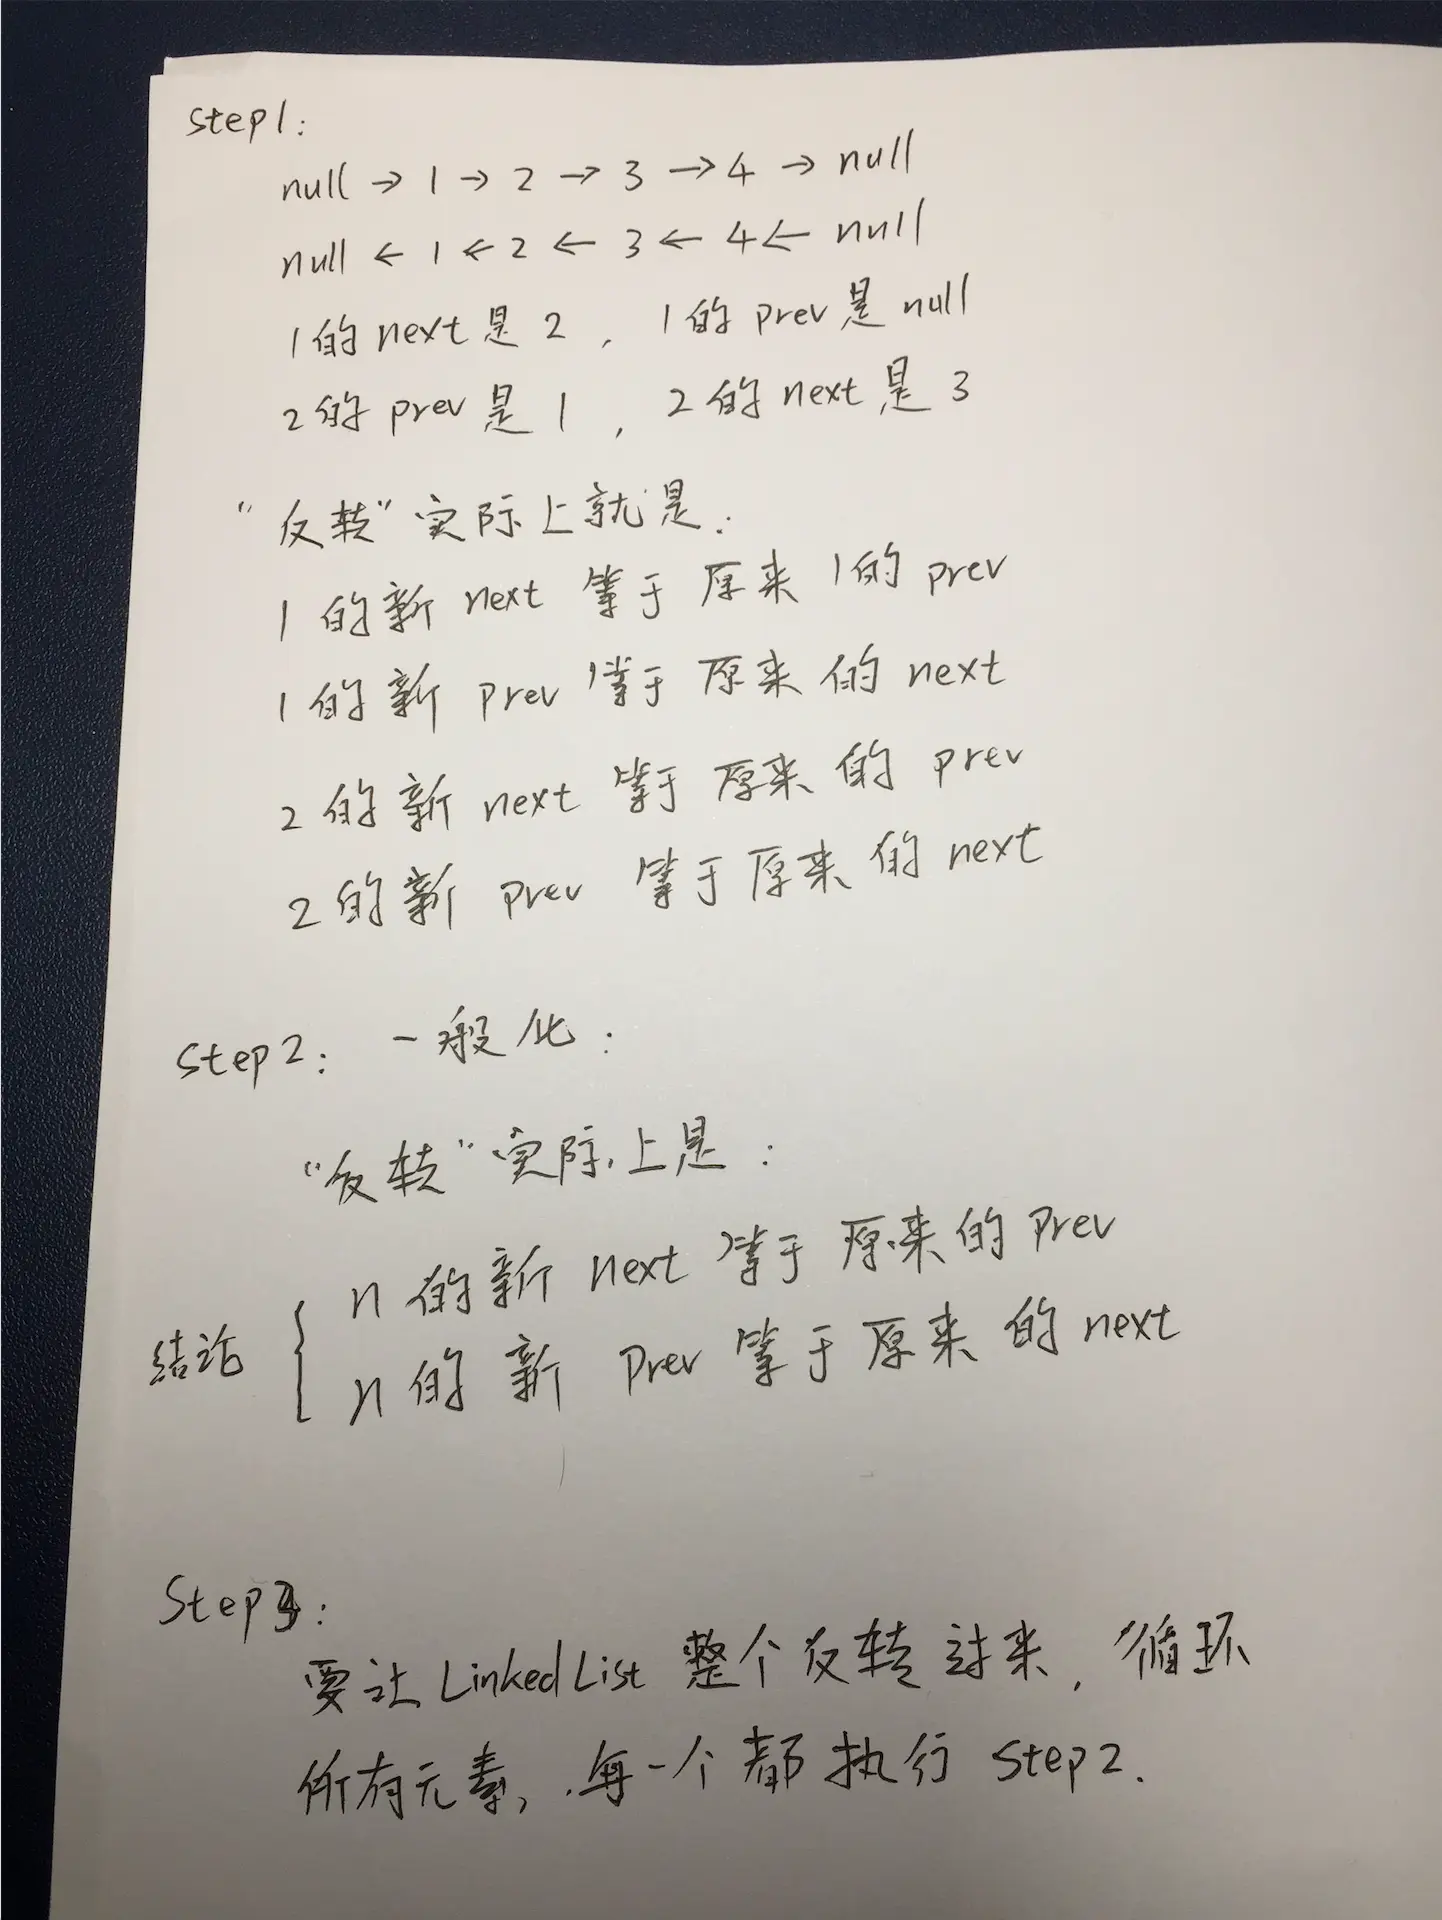 Step1:
null → 1 → 2 → 3 → 4 → null
null ← 1 ← 2 ← 3 ← 4 ← null
1的next是2, 1的prev是null
2的prev是1, 2的next是3
“反转”实际上就是:
1的新next等于原来1的prev
1的新prev等于原来的next
2的新next等于原来的prev
2的新prev等于原来的next
Step2: 一般化:
“反转”实际上是:
n的新next等于原来的prev
结论
n的新prev等于原来的next
Step3:
要让LinkedList整个反转过来, 循环
所有元素, 每一个都执行Step2.